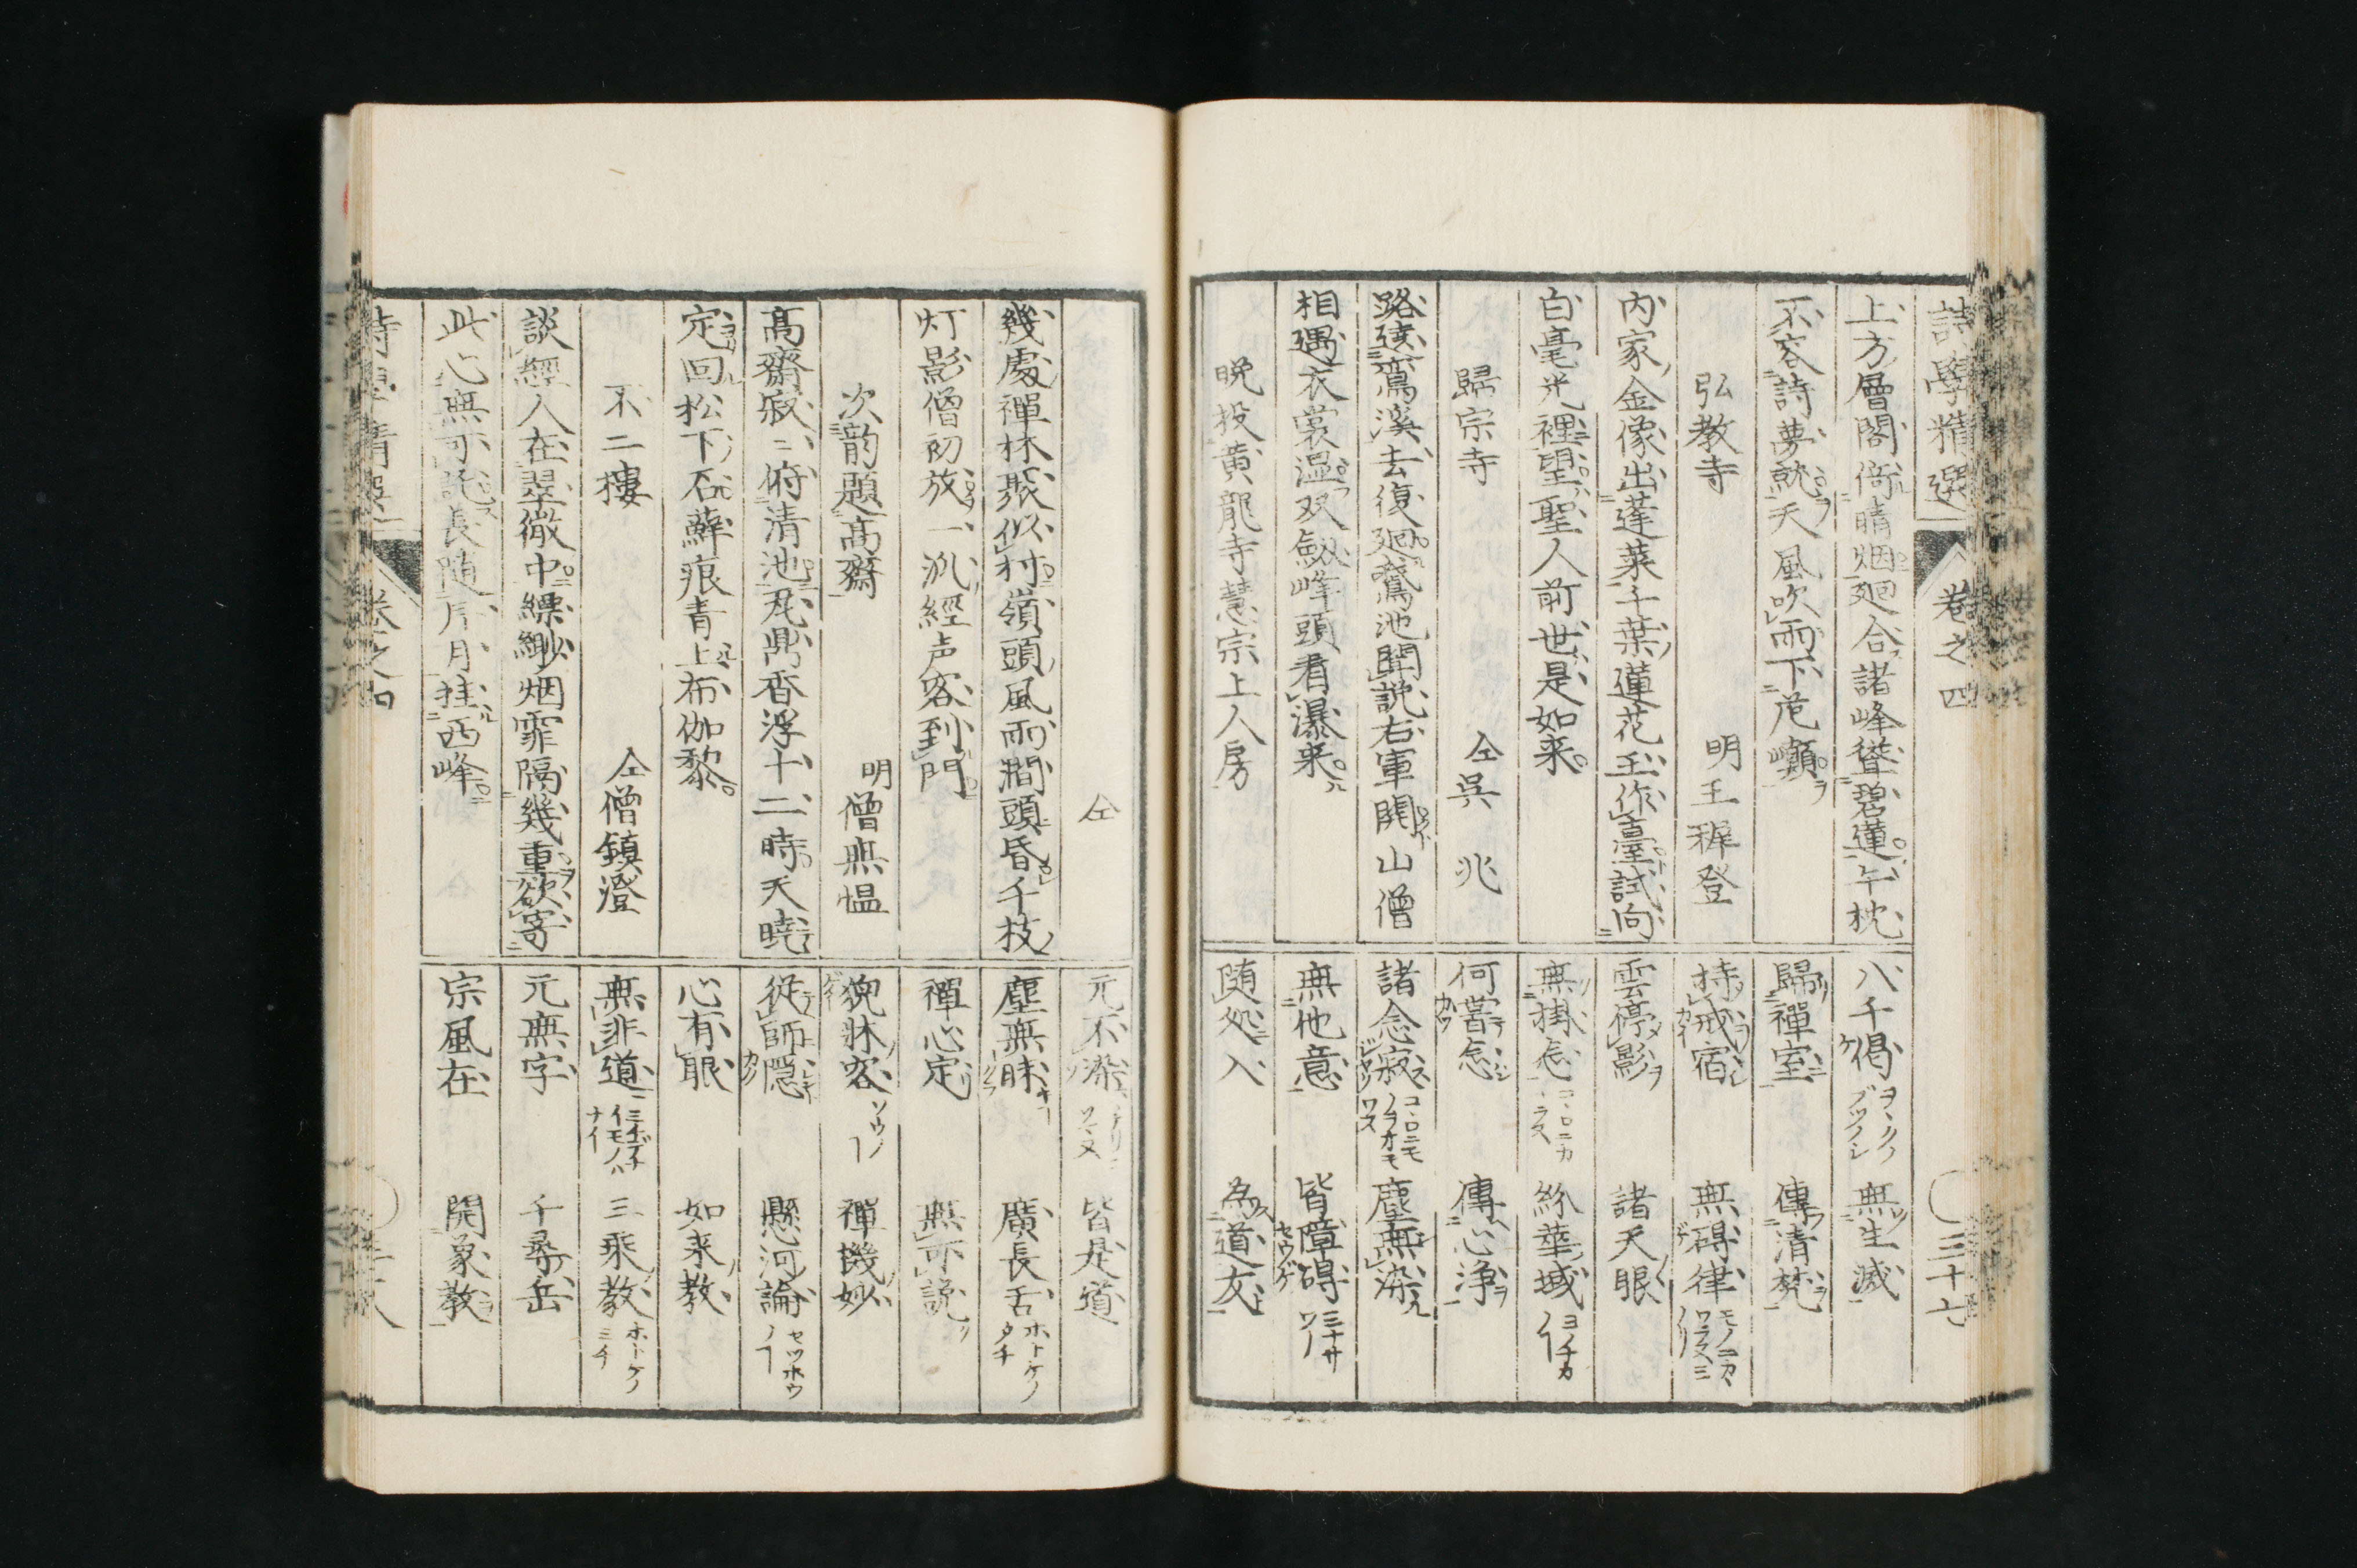 詩學精選 卷之四 三十七
上方層閣倚晴烟廻合諸峰聳碧蓮午枕
不容詩夢就天風吹雨下危巓
弘教寺 明王穉登
内家金像出蓬莱千葉蓮花玉作臺試向
白毫光裡望聖人前世是如来
歸宗寺 仝呉兆
路遶鸞溪去復廻鵞池聞説右軍開山僧
相遇衣裳温双劔峰頭看瀑来
晩投黄龍寺慧宗上人房
八千偈 ヲヽクノブツノシ 無生滅
歸禪室 傳清梵
持戒宿 無碍律
雲停影 諸天眼
無掛念 絲華域
何嘗念 傳心浄
諸念寂 塵無染
無他意 皆障碍
随処入 為道友
仝
幾處禪林聚似村嶺頭風雨澗頭昏千枝
灯影僧初放一派經声客到門
次韵題高齋 明僧無愠
高齋寂ニ俯清池瓦鼎香浮十二時天曉
定回松下石蘚痕青上布伽黎
不二樓 仝僧鎮澄
談經人在翠微中縹緲烟霏隔幾重欲寄
此心無可託長随片月挂西峰
元不染 皆是道
塵無昧 廣長舌 ホトケノタチ
禪心定 無可説
猊牀客 ソウノ 禪機妙
従師隠 懸河論 セツホウノ
心有眼 如来教
無非道 三乘教 ホトケノミチ
元無字 千尋岳
宗風在 開象教
詩學精選 卷之四